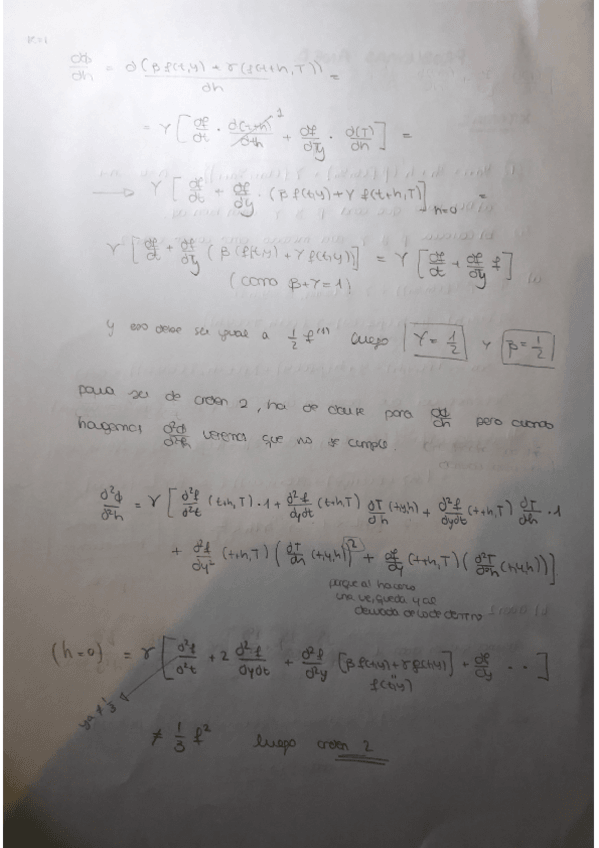 k=1
dΦ/dh = d(β f(t,y) + γ(f(t+h,T)))/dh =
= γ [ df/dt · d(t+h)/dh ¹ + df/dy · d(T)/dh ] =
→ γ [ df/dt + df/dy · (β f(t,y) + γ f(t+h,T) ] h=0 =
γ [ df/dt + df/dy (β f(t,y) + γ f(t,y)) ] = γ [ df/dt + df/dy f ]
(como β+γ=1)
y eso debe ser igual a 1/2 f⁽¹⁾ luego γ = 1/2 y β = 1/2
para ser de orden 2, ha de darse para dΦ/dh pero cuando
hagamos d²Φ/d²h veremos que no se cumple.
d²Φ/d²h = γ [ d²f/d²t (t+h,T)·1 + d²f/dydt (t+h,T) dT/dh (t,y,h) + d²f/dydt (t+h,T) dT/dh · 1
+ d²f/dy² (t+h,T) (dT/dh (t,y,h))² + df/dy (t+h,T) (d²T/d²h (t,y,h)) ]
porque al hacerlo
una vez, queda y as
derivada de lo de dentro
(h=0) = γ [ d²f/d²t + 2 d²f/dydt + d²f/d²y [β f(t,y) + γ f(t,y)] + df/dy ·· ]
f(t,y)
ya ≠ 1/3
≠ 1/3 f² luego orden 2